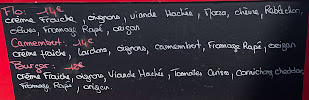 Flo: 14€
crème Fraiche, oignons, Viande Hachée, Mozza, chèvre, Reblochon,
olives, Fromage Rapé, origan
Camembert: 14€
crème fraiche, lardons, oignons, camembert, Fromage Rapé, origan
Burger:
Crème Fraiche, oignons, Viande Haché, Tomates Cerise, Cornichons cheddar,
Fromage Rapé, origan